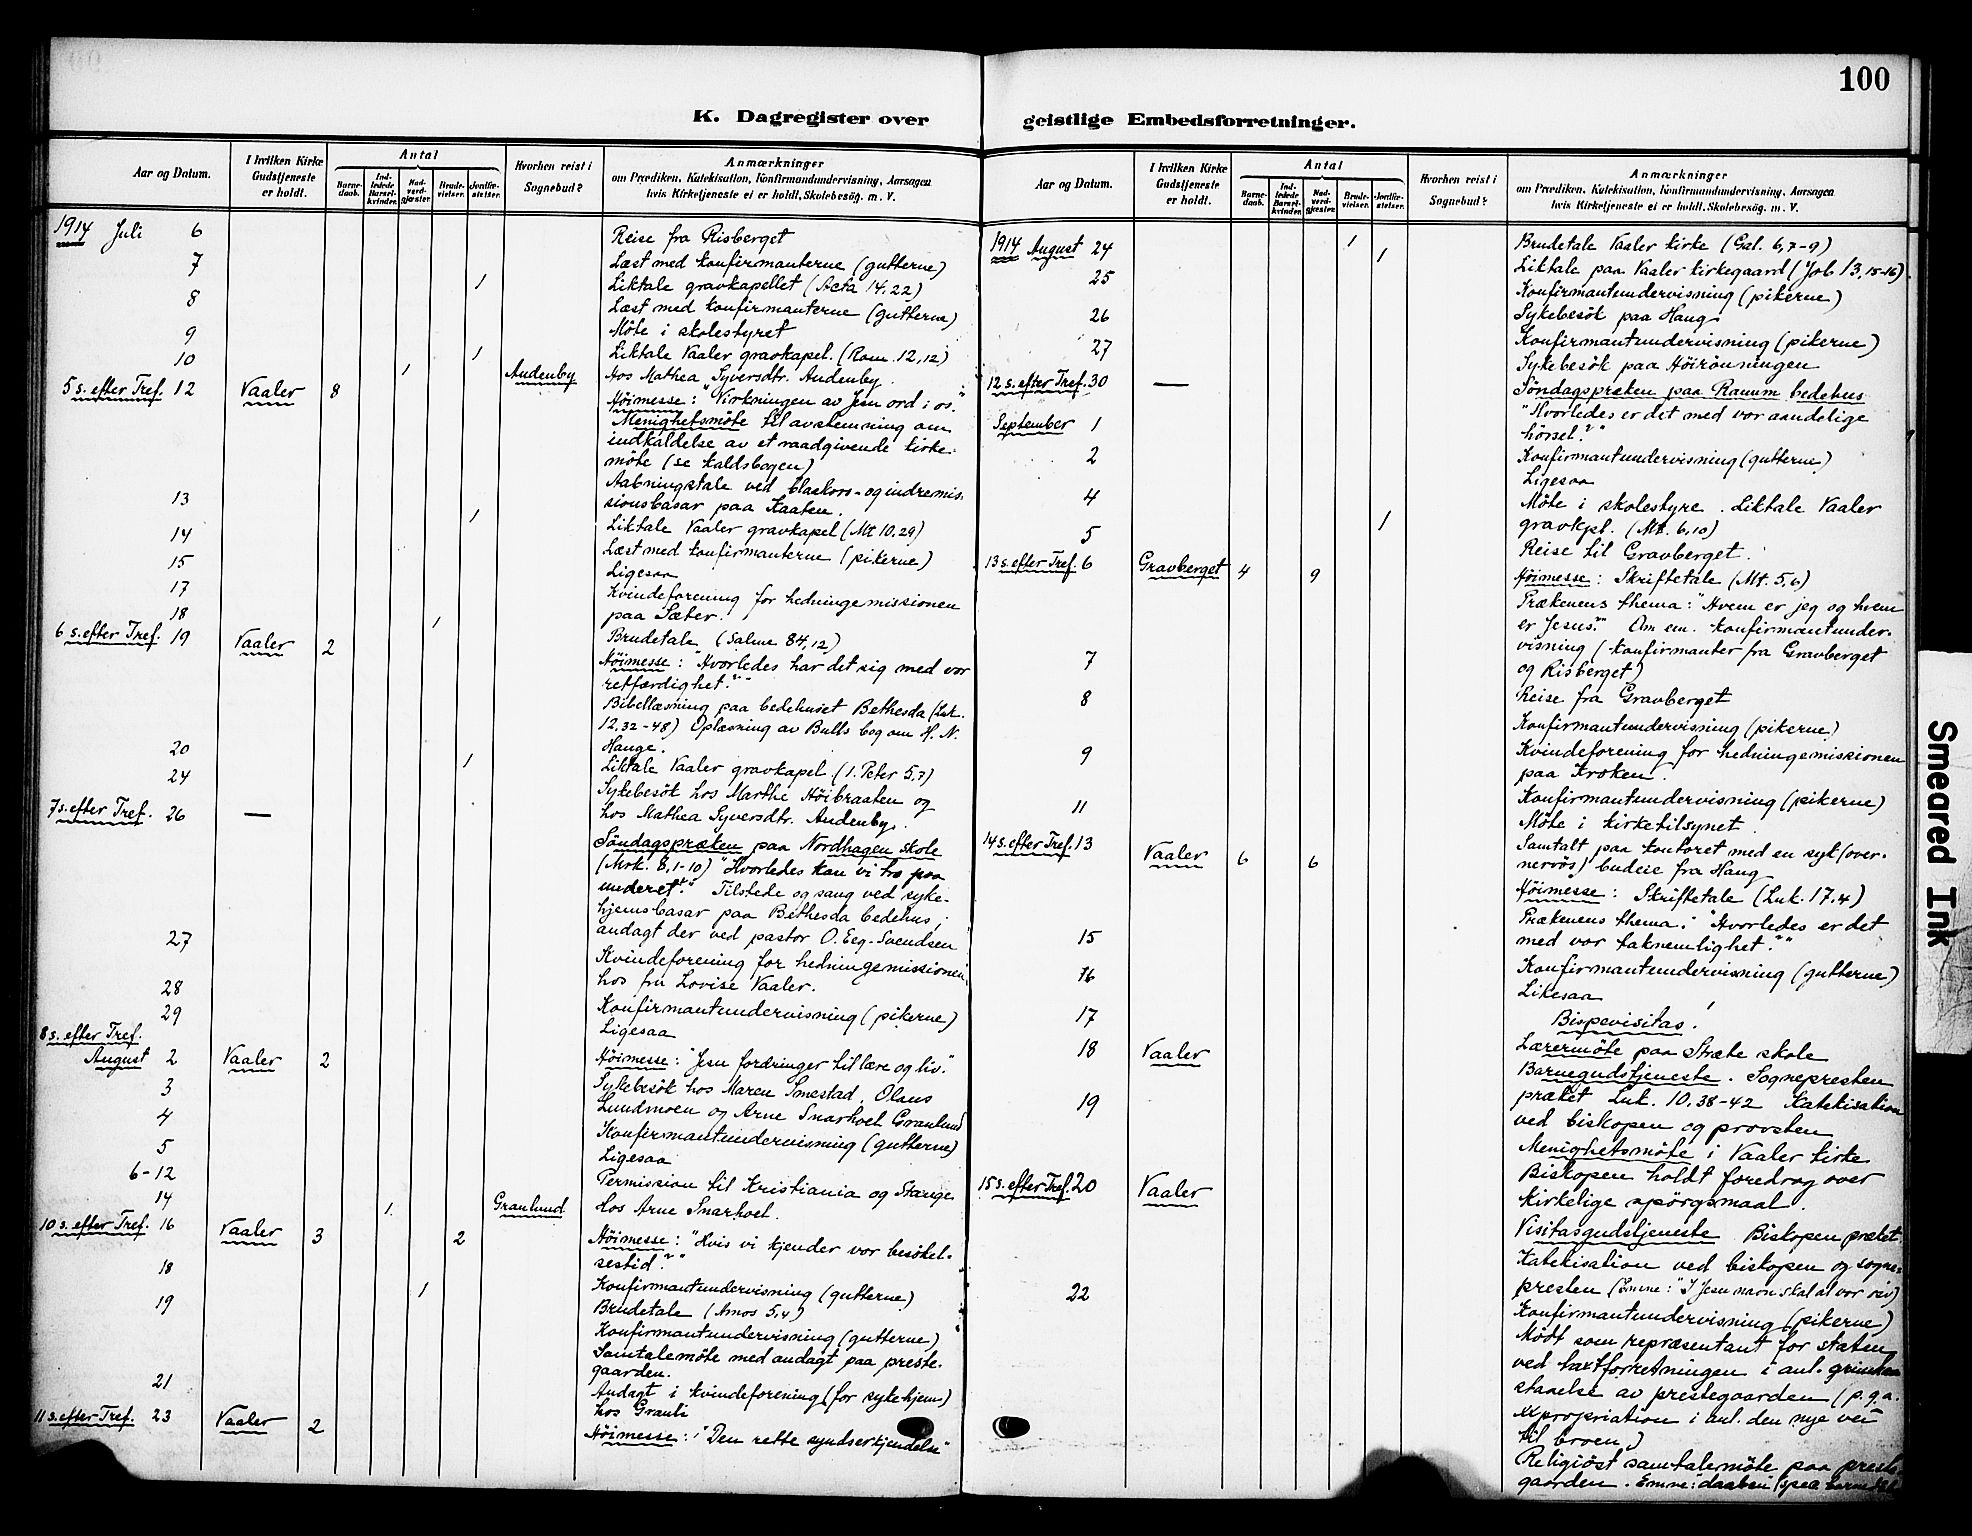 100
K. Dagregister over
geistlige Embedsforretninger.
Aar og Datum.
I hvilken Kirke Gudstjeneste er holdt.
Antal
Barnedaab.
Indledede Barselkvinder.
Nadverdgjæster.
Brudevielser.
Jordfæstelser.
Hvorhen reist i Sognebud?
Anmærkninger
om Prædiken, Katekisation, Konfirmandundervisning, Aarsagen
hvis Kirketjeneste ei er holdt, Skolebesøg. m. V.
1914 Juli 6 Reise fra Risberget
7 Læst med konfirmanterne (gutterne)
1 Liktale gravkapellet (Acta 14,22)
8 Læst med konfirmanterne (gutterne)
9 Møte i skolestyret
10 1 Liktale Vaaler gravkapel. (Rom. 12,12)
1 Audenby Hos Mathea Syversdtr. Audenby.
5 s. efter Tref. 12 Vaaler 8 Høimesse: "Virkningen av Jesu ord i os."
Menighetsmøte til avstemning om
indkaldelse av et raadgivende kirke-
møte (se kaldsbogen)
13 Aabningstale ved blaakors- og indremis-
sionsbasar paa Kaaten.
14 1 Liktale Vaaler gravkapel (Mt 10,29)
15 Læst med konfirmanterne (pikerne)
Ligesaa
17 Kvindeforening for hedningemissionen
paa Sæter.
18 1 Brudetale (Salme 84,12)
6 s. efter Tref. 19 Vaaler 2 Høimesse: "Hvorledes har det sig med vor
retfærdighet?"
Bibellæsning paa bedehuset Bethesda (Luk.
12,32-48) Oplæsning av Bulls bog om H. N.
Hauge.
20 1 Liktale Vaaler gravkapel (1. Peter 5,7)
24 Sykebesøk hos Marthe Høibraaten og
hos Mathea Syversdtr. Audenby.
7 s. efter Tref. 26 — Søndagspræken paa Nordhagen skole
(Mrk. 8,1-10) "Hvorledes kan vi tro paa
underet?" Tilstede og sang ved syke-
hjemsbasar paa Bethesda bedehus,
andagt der ved pastor O. Eeg-Svendsen
27 Kvindeforening for hedningemissionen
hos fru Lovise Vaaler.
28 Konfirmantundervisning (pikerne)
29 Ligesaa
8 s. efter Tref.
August 2 Vaaler 2 Høimesse: "Jesu fordringer til lære og liv."
3 Sykebesøk hos Maren Smestad, Olaus
Lundmoen og Arne Snarhoel Graulund
4 Konfirmantundervisning (gutterne)
5 Ligesaa
6-12 Permission til Kristiania og Stange
14 1 Graulund Hos Arne Snarhoel.
10 s. efter Tref. 16 Vaaler 3 2 Høimesse: "Hvis vi kjender vor besøkel-
sestid?"
18 Konfirmantundervisning (gutterne)
19 1 Brudetale (Amos 5,4)
Konfirmantundervisning (gutterne)
Samtalemøte med andagt paa preste-
gaarden.
21 Andagt i kvindeforening (for sykehjem)
hos Grauli
11 s. efter Tref. 23 Vaaler 2 Høimesse: "Den rette syndserkjendelse"
Aar og Datum.
I hvilken Kirke Gudstjeneste er holdt.
Antal
Barnedaab.
Indledede Barselkvinder.
Nadverdgjæster.
Brudevielser.
Jordfæstelser.
Hvorhen reist i Sognebud?
Anmærkninger
om Prædiken, Katekisation, Konfirmandundervisning, Aarsagen
hvis Kirketjeneste ei er holdt, Skolebesøg. m. V.
1914 August 24 1 Brudetale Vaaler kirke (Gal. 6,7-9)
1 Liktale paa Vaaler kirkegaard (Job 13,15-16).
25 Konfirmantundervisning (pikerne)
Sykebesøk paa Haug
26 Konfirmantundervisning (pikerne)
27 Sykebesøk paa Høirønningen
12 s. efter Tref. 30 — Søndagspræken paa Ranum bedehus
"Hvorledes er det med vor aandelige
hørsel?"
September 1 Konfirmantundervisning (gutterne)
2 Ligesaa
4 1 Møte i skolestyre. Liktale Vaaler
gravkpl. (Mt. 6,10)
5 Reise til Gravberget.
13 s. efter Tref. 6 Gravberget 4 9 Høimesse: Skriftetale (Mt. 5,6)
Prækenens thema: "Hvem er jeg og hvem
er Jesus?" Om em. konfirmantunder-
visning (konfirmanter fra Gravberget
og Risberget)
7 Reise fra Gravberget
8 Konfirmantundervisning (pikerne)
Kvindeforening for hedningemissionen
paa Kroken.
9 Konfirmantundervisning (pikerne)
Møte i kirketilsynet
11 Samtalt paa kontoret med en syk (over-
nervøs) budeie fra Haug
14 s. efter Tref. 13 Vaaler 6 6 Høimesse: Skriftetale (Luk. 17.4)
Prækenens thema: "Hvorledes er det
med vor taknemlighet?"
15 Konfirmantundervisning (gutterne)
16 Likesaa
Bispevisitas!
17 Lærermøte paa Stræte skole
18 Vaaler Barnegudstjeneste. Sognepresten
præket Luk. 10.38-42 Katekisation
ved biskopen og provsten
19 Menighetsmøte i Vaaler kirke
Biskopen holdt foredrag over
kirkelige spørgsmaal.
15 s. efter Tref. 20 Vaaler Visitasgudstjeneste Biskopen præket.
Katekisation ved biskopen og sogne-
presten (Emne: "I Jesu navn skal al vor riv)
22 Konfirmantundervisning (pikerne)
Mødt som repræsentant for staten
ved taxtforretningen i anl.
staaelse av prestegaarden (p.g.a.
expropriation i anl. den nye vei
til broen.)
Religiøst samtalemøte paa preste-
gaarden. Emne: daaben
Smeared Ink